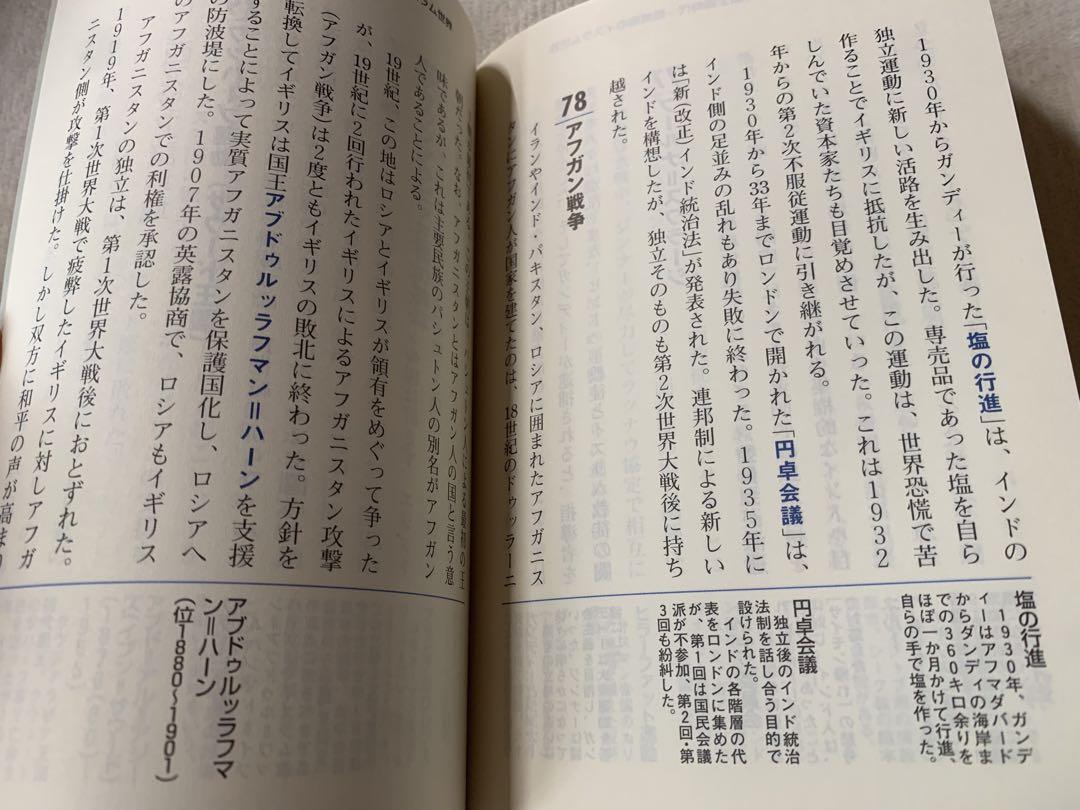 1930年からガンディーが行った「塩の行進」は、インドの
独立運動に新しい活路を生み出した。専売品であった塩を自ら
作ることでイギリスに抵抗したが、この運動は、世界恐慌で苦
しんでいた資本家たちも目覚めさせていった。これは1932
年からの第2次不服従運動に引き継がれる。
1930年から33年までロンドンで開かれた「円卓会議」は、
インド側の足並みの乱れもあり失敗に終わった。1935年に
は「新(改正)インド統治法」が発表された。連邦制による新しい
インドを構想したが、独立そのものも第2次世界大戦後に持ち
越された。
78 アフガン戦争
イランやインド・パキスタン、ロシアに囲まれたアフガニス
タンにアフガン人が国家を建てたのは、18世紀のドゥッラーニ
塩の行進
1930年、ガンデ
ィーはアフマダバード
からダンディの海岸ま
での360キロ余りを
ほぼ一か月かけて行進、
自らの手で塩を作った。
円卓会議
独立後のインド統治
法制を話し合う目的で
設けられた。
インドの各階層の代
表をロンドンに集めた
が、第1回は国民会議
派が不参加、第2回・第
3回も紛糾した。
ラム世界
朝だった。なお、アフガニスタンとはアフガン人の国と言う意
味であるが、これは主要民族のパシュトン人の別名がアフガン
人であることによる。
19世紀、この地はロシアとイギリスが領有をめぐって争った
が、19世紀に2回行われたイギリスによるアフガニスタン攻撃
(アフガン戦争)は2度ともイギリスの敗北に終わった。方針を
転換してイギリスは国王アブドゥルッラフマン=ハーンを支援
することによって実質アフガニスタンを保護国化し、ロシアへ
の防波堤にした。1907年の英露協商で、ロシアもイギリス
のアフガニスタンでの利権を承認した。
アフガニスタンの独立は、第1次世界大戦後におとずれた。
1919年、第1次世界大戦で疲弊したイギリスに対しアフガ
ニスタン側が攻撃を仕掛けた。しかし双方に和平の声が高まり
アブドゥルッラフマ
ン=ハーン
(位1880~1901)